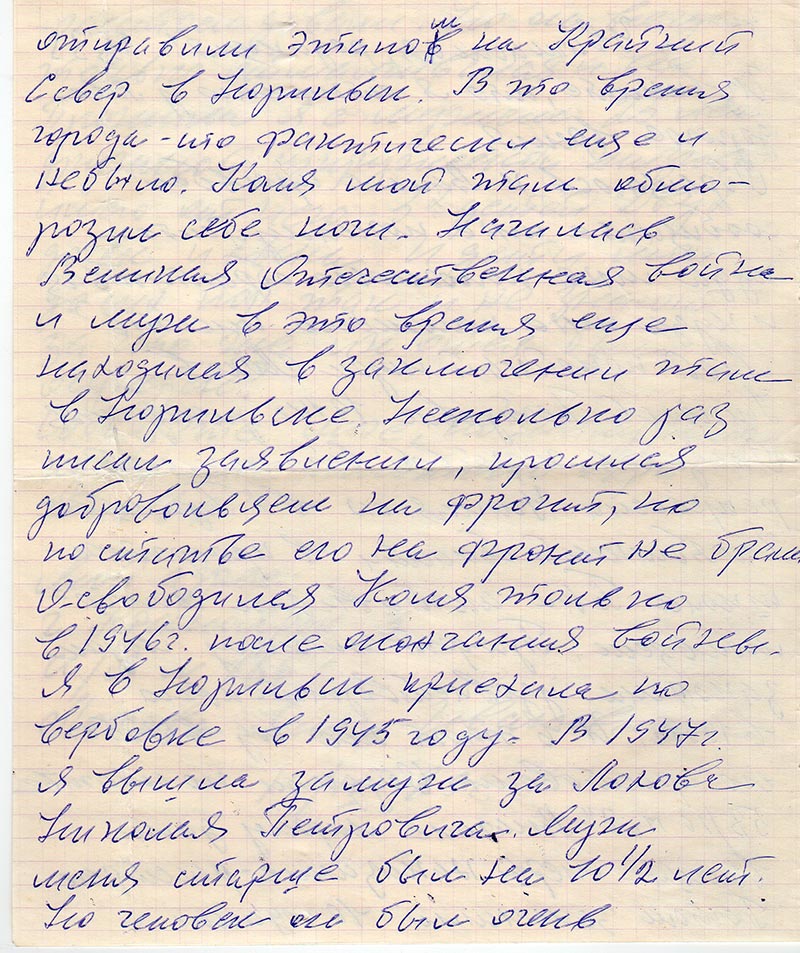 отправили этапом на Крайний
Север в Норильск. В это время
города-то фактически еще и
небыло. Коля мой там обмо-
розил себе ноги. Началась
Великая Отечественная война
и муж в это время еще
находился в заключении там
в Норильске. Несколько раз
писал заявлении, просился
добровольцем на фронт, но
по статье его на фронт не брали
Освободился Коля только
в 1946г. после окончания войны.
Я в Норильск приехала по
вербовке в 1945 году. В 1947г.
я вышла замуж за
Николая Петровича. Муж
меня старше был на 10 1/2 лет.
Но человек он был очень